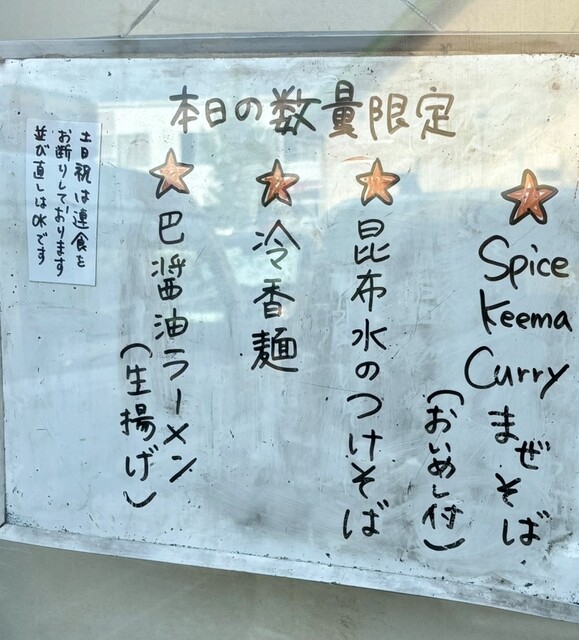 本日の数量限定
Spice
Keema
Curry
まぜそば
(おいめし付)
昆布水のつけそば
冷香麺
巴醤油ラーメン
(生揚げ)
土日祝は連食を
お断りしております
並び直しはOKです